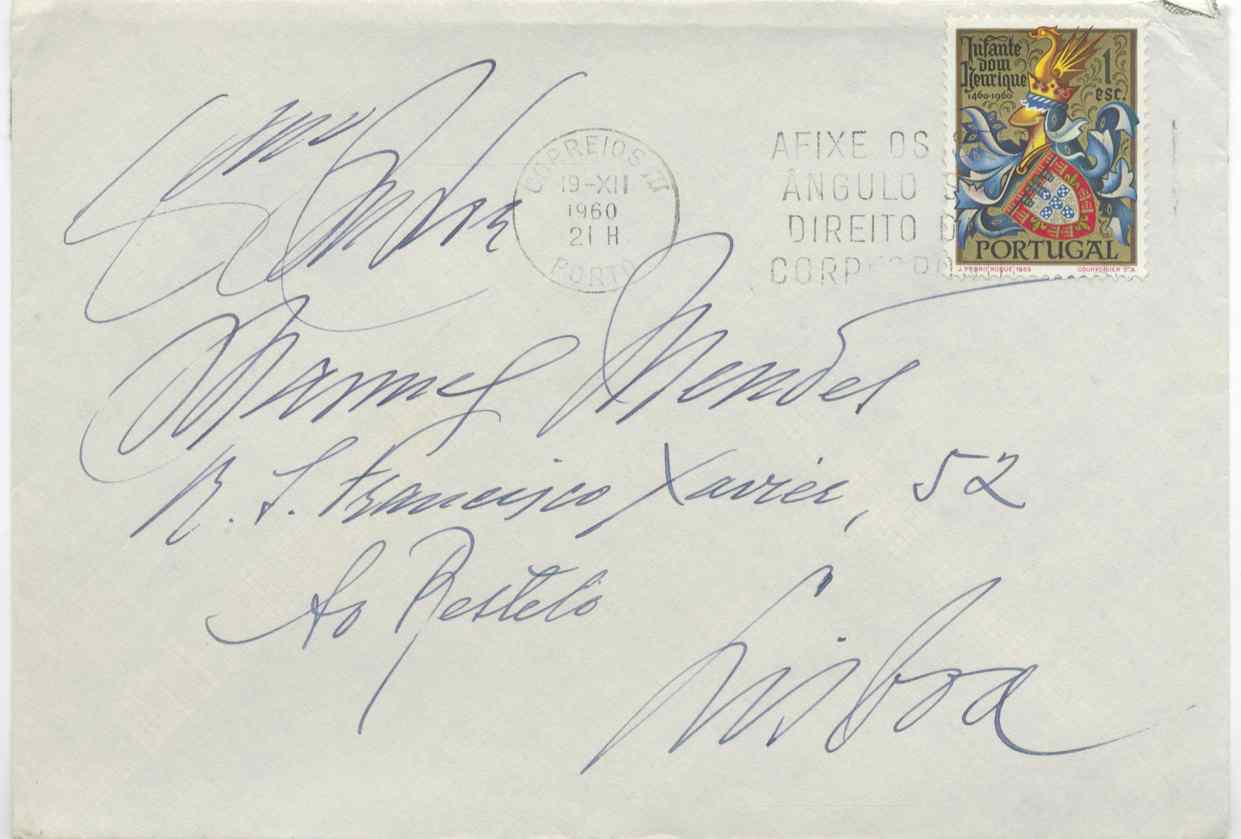 Infante
dom
Henrique
1460-1960
1
esc.
PORTUGAL
J. PEDRO ROQUE, 1960
COURVOISIER S.A.
CORREIOS
19-XII
1960
21 H
PORTO
AFIXE OS
ÂNGULO S
DIREITO D
Exmo
Senhor
Manuel Mendes
R. S. Francisco Xavier, 52
Ao Restelo
Lisboa